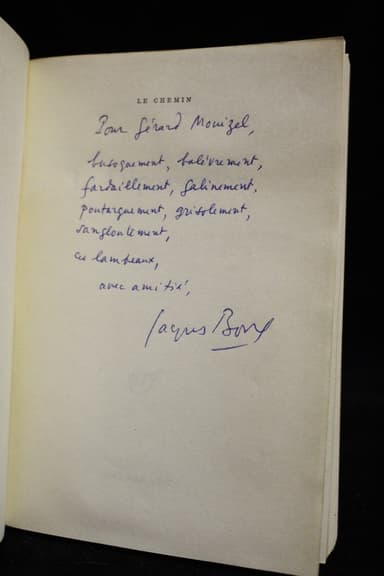 LE CHEMIN
Pour Gérard Mouizel,
busoguement, balèvrement,
fardaillement, galinement,
poutarguement, grisolement,
sangloutement,
ces lambeaux,
avec amitié,
Jacques Borel